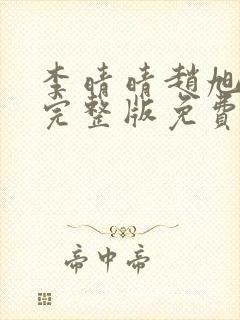 李晴晴趙旭
完整版免費
帝中帝